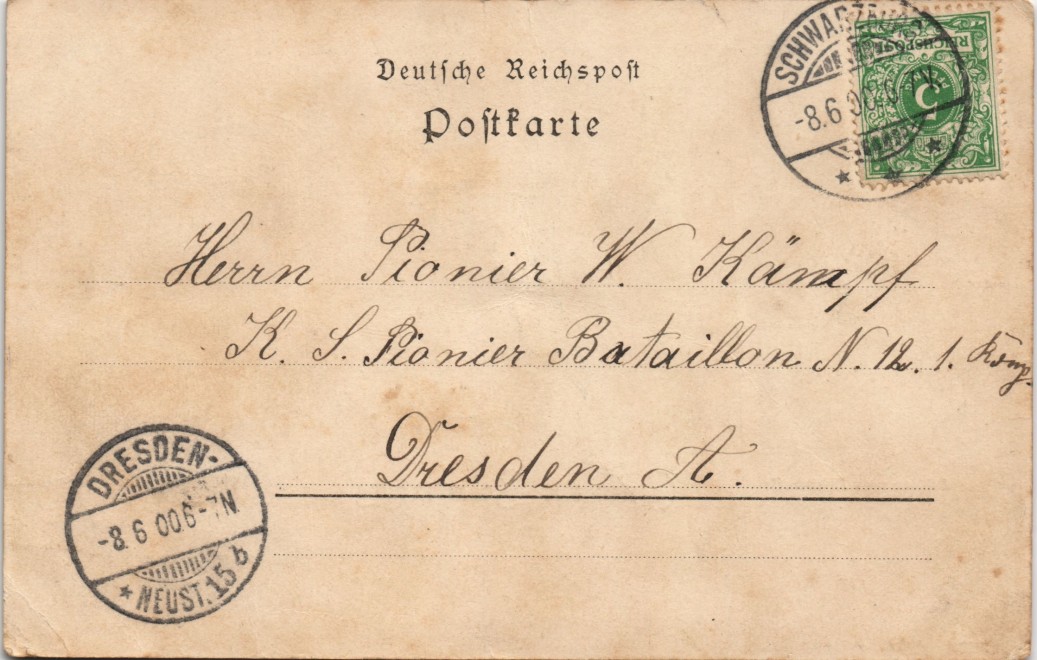 Deutsche Reichspost
Postkarte
REICHSPOST
5
-8.6 00.6-7V.
Herrn Pionier W. Kämpf
K. S. Pionier Bataillon N. 12. 1. Komp.
Dresden A.
DRESDEN-
-8.6 00.6-7N
* NEUST. 15 b